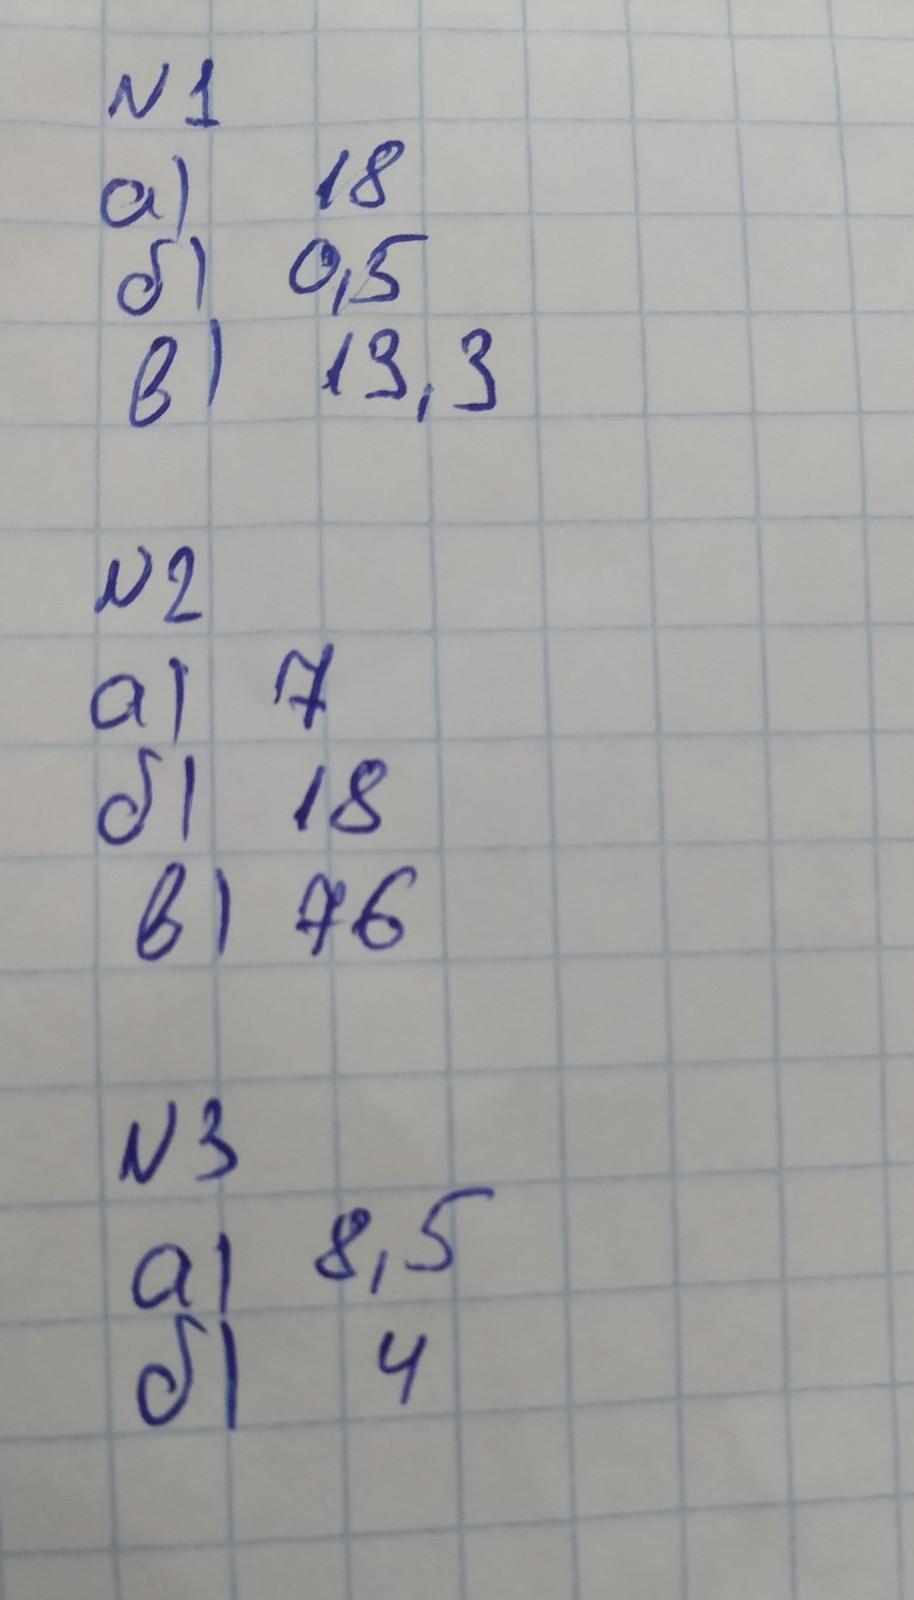 N1
а) 18
б) 0,5
в) 19,3
N2
а) 7
б) 18
в) 76
N3
а) 8,5
б) 4